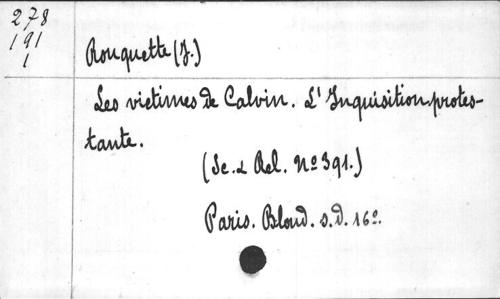 278
191
1
Rouquette (J.)
Les victimes de Calvin. L'Inquisition protes-
tante.
(Sc. & Rel. No 391.)
Paris. Bloud. s.d. 16o.